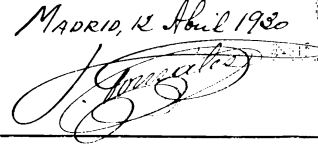 MADRID, 12 Abril 1930
J. Gonzales